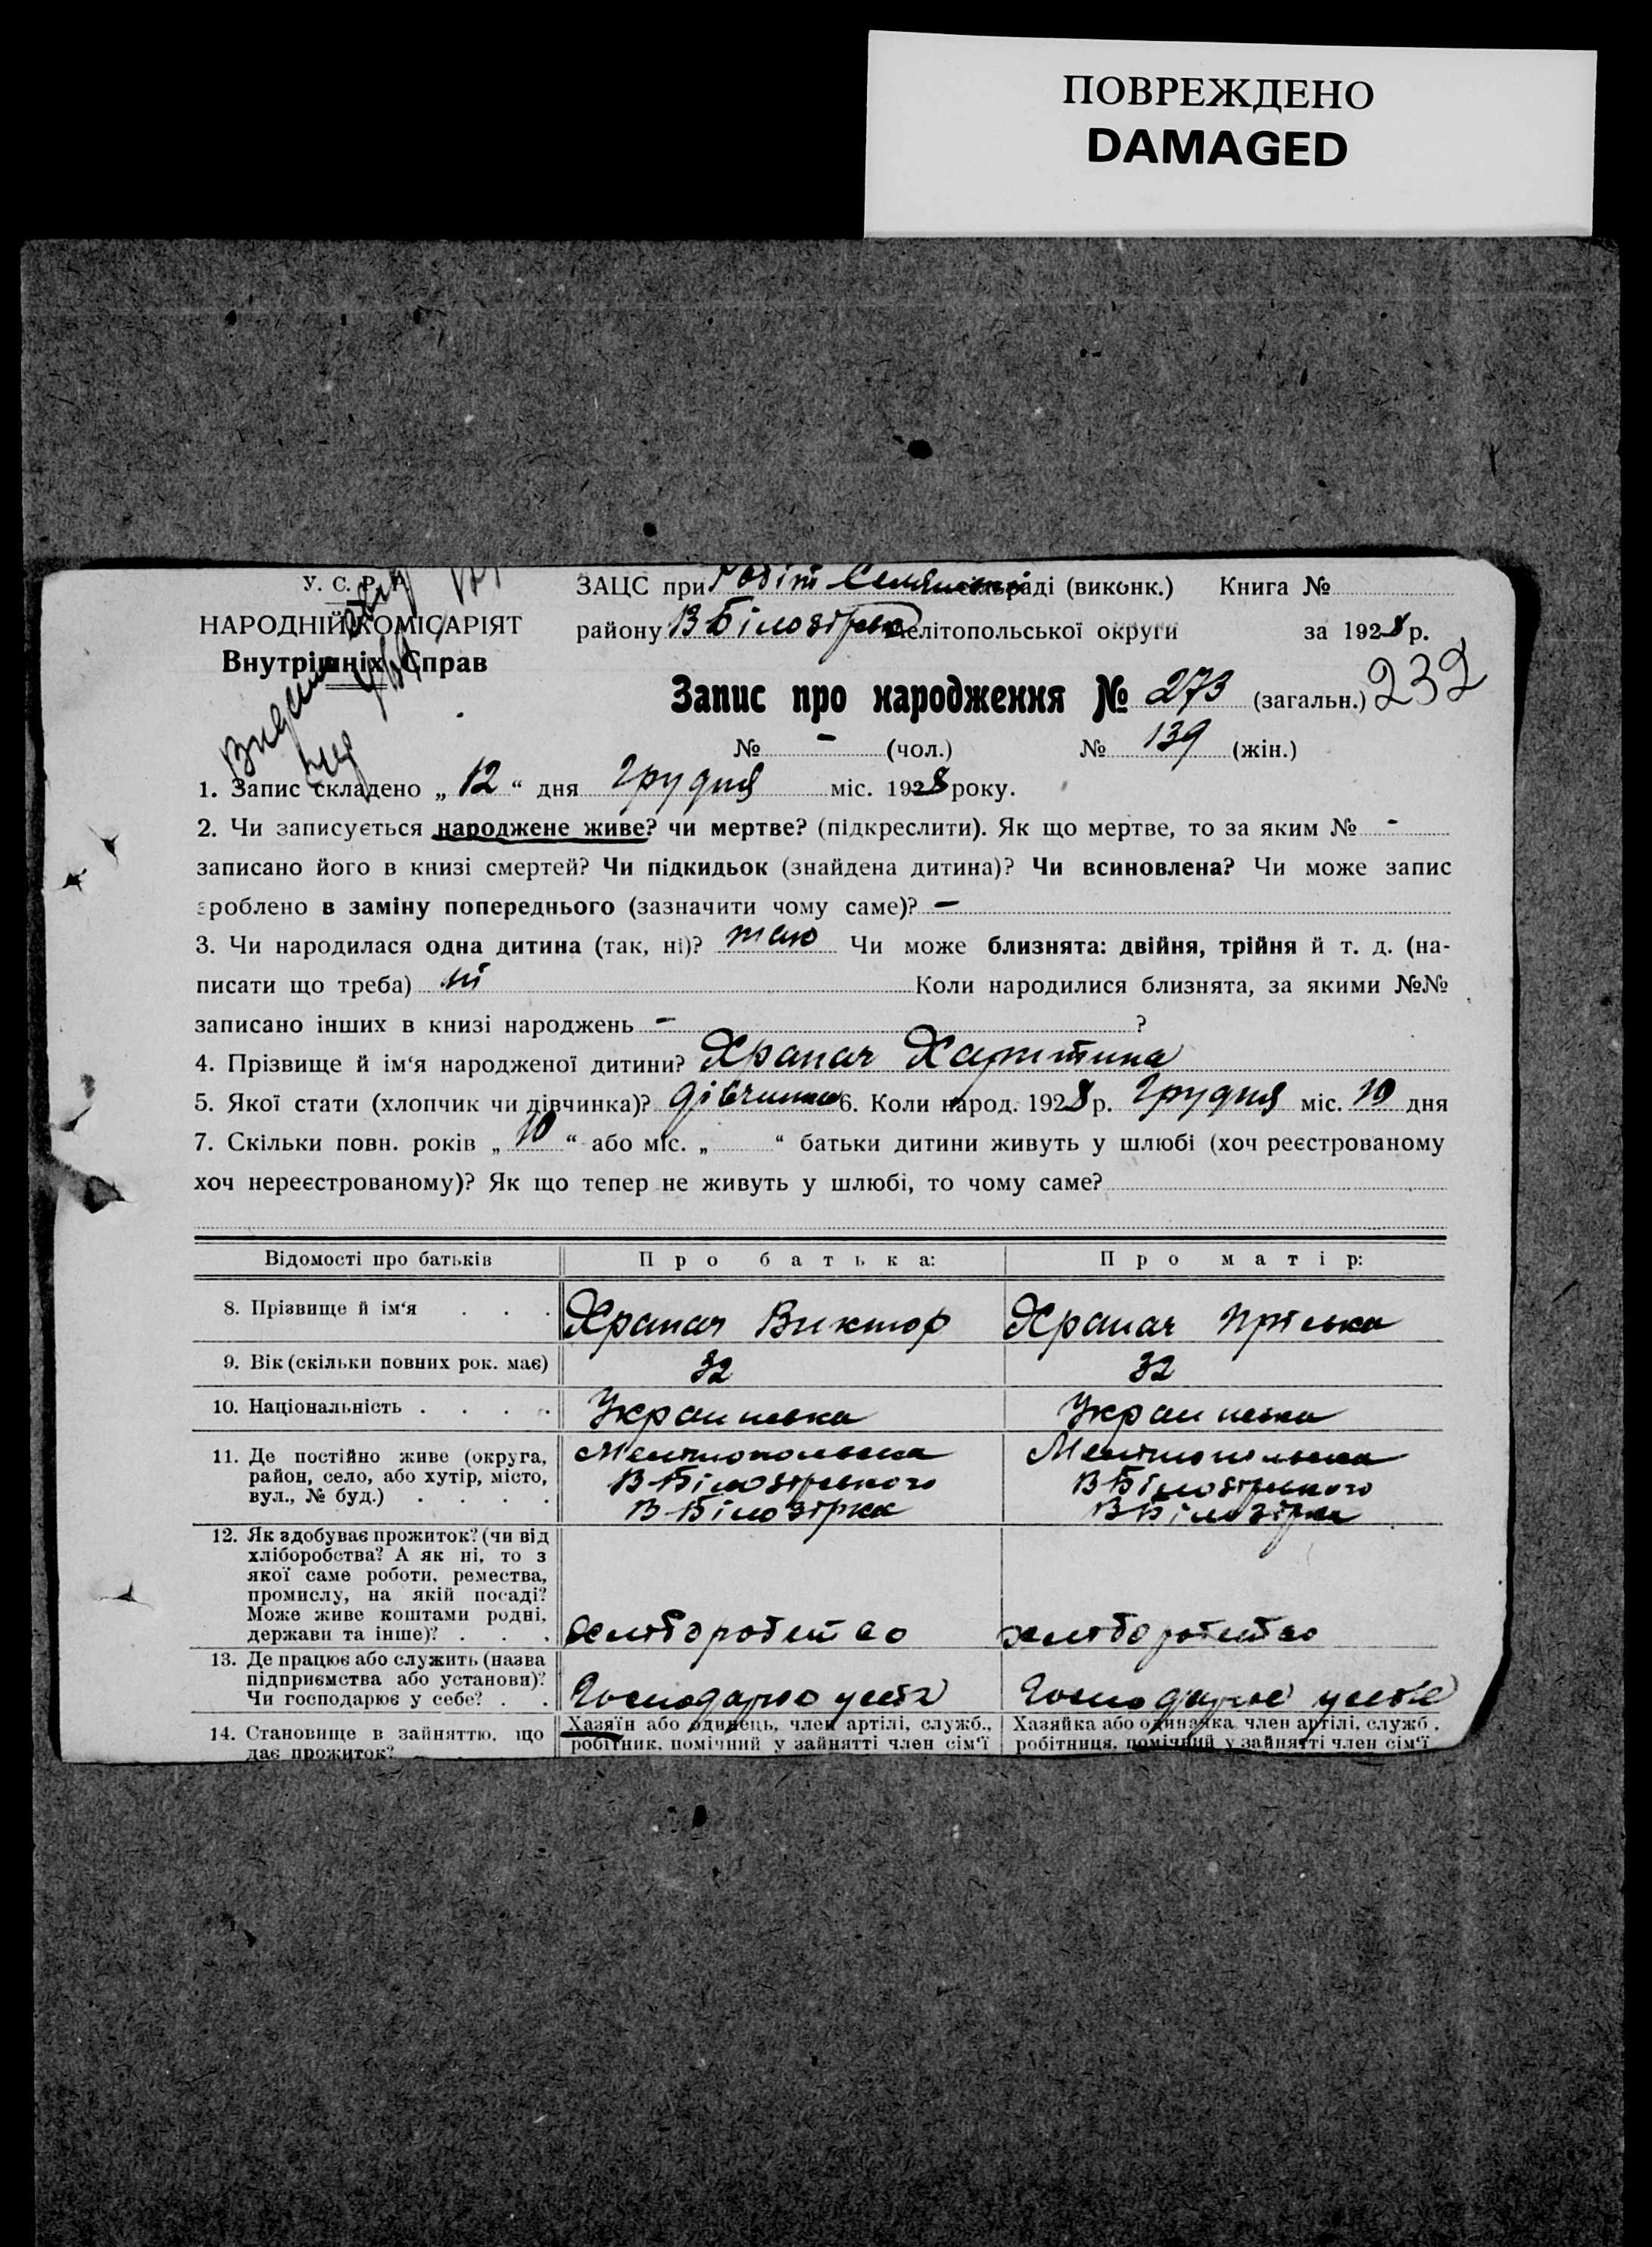 ПОВРЕЖДЕНО
DAMAGED
У. С. Р. Р.
НАРОДНІЙ КОМІСАРІЯТ
Внутрішніх Справ
ЗАЦС при Робіт Селянськ раді (виконк.) Книга №
району В Білозірсь Мелітопольської округи за 1928 р.
Запис про народження № 273 (загальн.) 232
№ - (чол.) № 139 (жін.)
1. Запис складено „12“ дня Грудня міс. 1928 року.
2. Чи записується народжене живе? чи мертве? (підкреслити). Як що мертве, то за яким № -
записано його в книзі смертей? Чи підкидьок (знайдена дитина)? Чи всиновлена? Чи може запис
зроблено в заміну попереднього (зазначити чому саме)? —
3. Чи народилася одна дитина (так, ні)? так Чи може близнята: двійня, трійня й т. д. (на-
писати що треба) ні Коли народилися близнята, за якими №№
записано інших в книзі народжень - ?
4. Прізвище й ім‘я народженої дитини? Храпач Харитина
5. Якої стати (хлопчик чи дівчинка)? дівчинка 6. Коли народ. 1928 р. Грудня міс. 10 дня
7. Скільки повн. років „10“ або міс. „ “ батьки дитини живуть у шлюбі (хоч реєстрованому
хоч нереєстрованому)? Як що тепер не живуть у шлюбі, то чому саме?
Відомості про батьків Про батька: Про матір:
8. Прізвище й ім‘я . . . Храпач Виктор Храпач Пріська
9. Вік (скільки повних рок. має) 32 32
10. Національність . . . . Украинська Украинська
11. Де постійно живе (округа, Мелітопольска Мелітопольска
район, село, або хутір, місто, В-Білозірського В Білозірського
вул., № буд.) . . . . В-Білозірка В Білозірка
12. Як здобуває прожиток? (чи від
хліборобства? А як ні, то з
якої саме роботи, ремества,
промислу, на якій посаді?
Може живе коштами родні,
держави та інше)? . . . хліборобство хліборобство
13. Де працює або служить (назва
підприємства або установи)?
Чи господарює у себе? . . Господарює у себе Господарює у себе
14. Становище в зайняттю, що Хазяїн або одинець, член артілі, служб., Хазяйка або одиначка член артілі, служб.,
дає прожиток? робітник, помічний у зайнятті член сім‘ї робітниця, помічний у зайнятті член сім‘ї